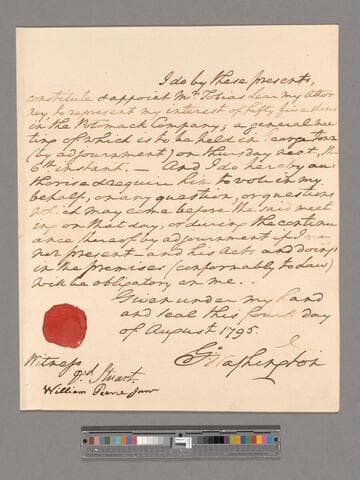 I do by these presents,
constitute & appoint Mr Tobias Lear my Attor
ney, to represent my interest of fifty five shares
in the Potomack Company; a general mee
ting of which is to be held in George town
(by adjournment) on thursday next, the
6th instant. — And I do hereby au
thorise & require him to vote in my
behalf, on any question, or questions
which may come before the said meet
ing on that day, or during the continu
ance thereof by adjournment if I
ner present — and his Acts, and doings
in the premises (conformably to Law)
will be obligatory on me.
Given under my hand
and seal this fourth day
of August 1795.
Go Washington
Witness
Stuart.
William Pearce Junr